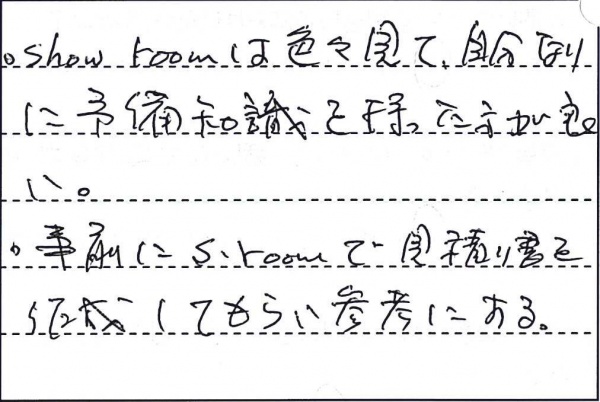 。show roomは色々見て、自分なり
に予備知識を持った方が良
い。
。事前にS.roomで見積り書を
作成してもらい参考にする。